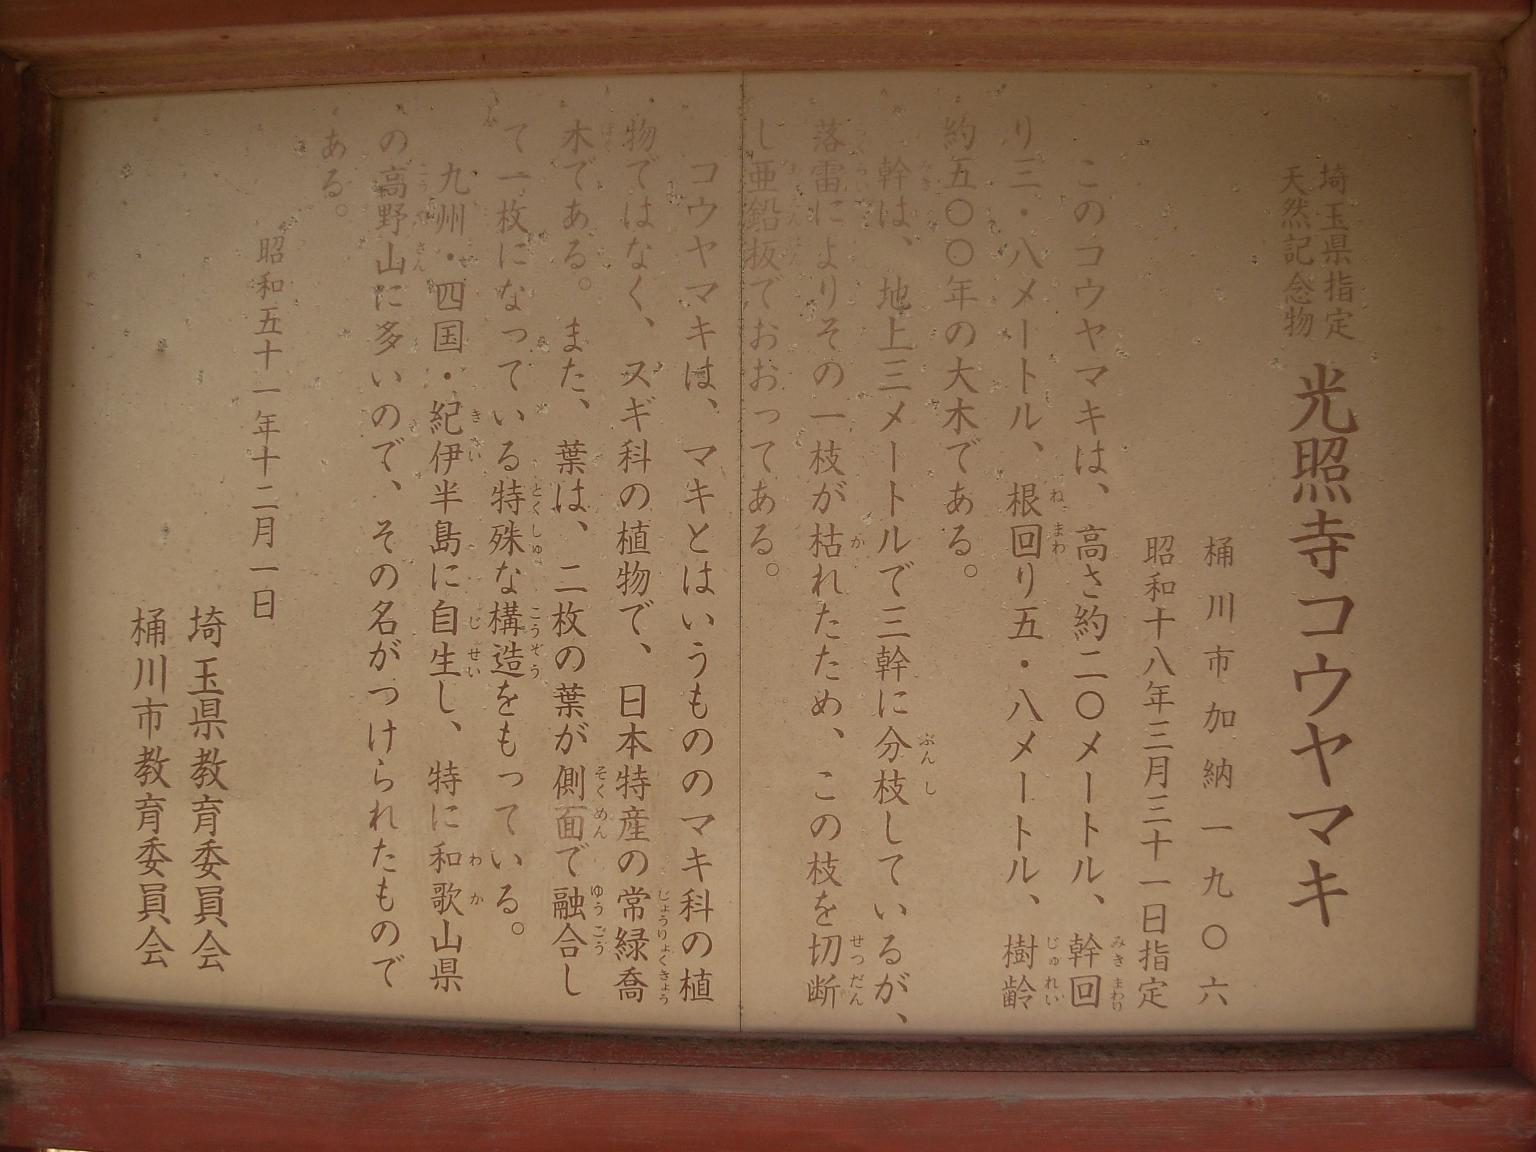 埼玉県指定
天然記念物
光照寺コウヤマキ
桶川市加納一九〇六
昭和十八年三月三十一日指定
このコウヤマキは、高さ約二〇メートル、幹回
り三・八メートル、根回り五・八メートル、樹齢
約五〇〇年の大木である。
幹は、地上三メートルで三幹に分枝しているが、
落雷によりその一枝が枯れたため、この枝を切断
し亜鉛板でおおってある。
コウヤマキは、マキとはいうもののマキ科の植
物ではなく、スギ科の植物で、日本特産の常緑喬
木である。また、葉は、二枚の葉が側面で融合し
て一枚になっている特殊な構造をもっている。
九州・四国・紀伊半島に自生し、特に和歌山県
の高野山に多いので、その名がつけられたもので
ある。
昭和五十一年十二月一日
埼玉県教育委員会
桶川市教育委員会